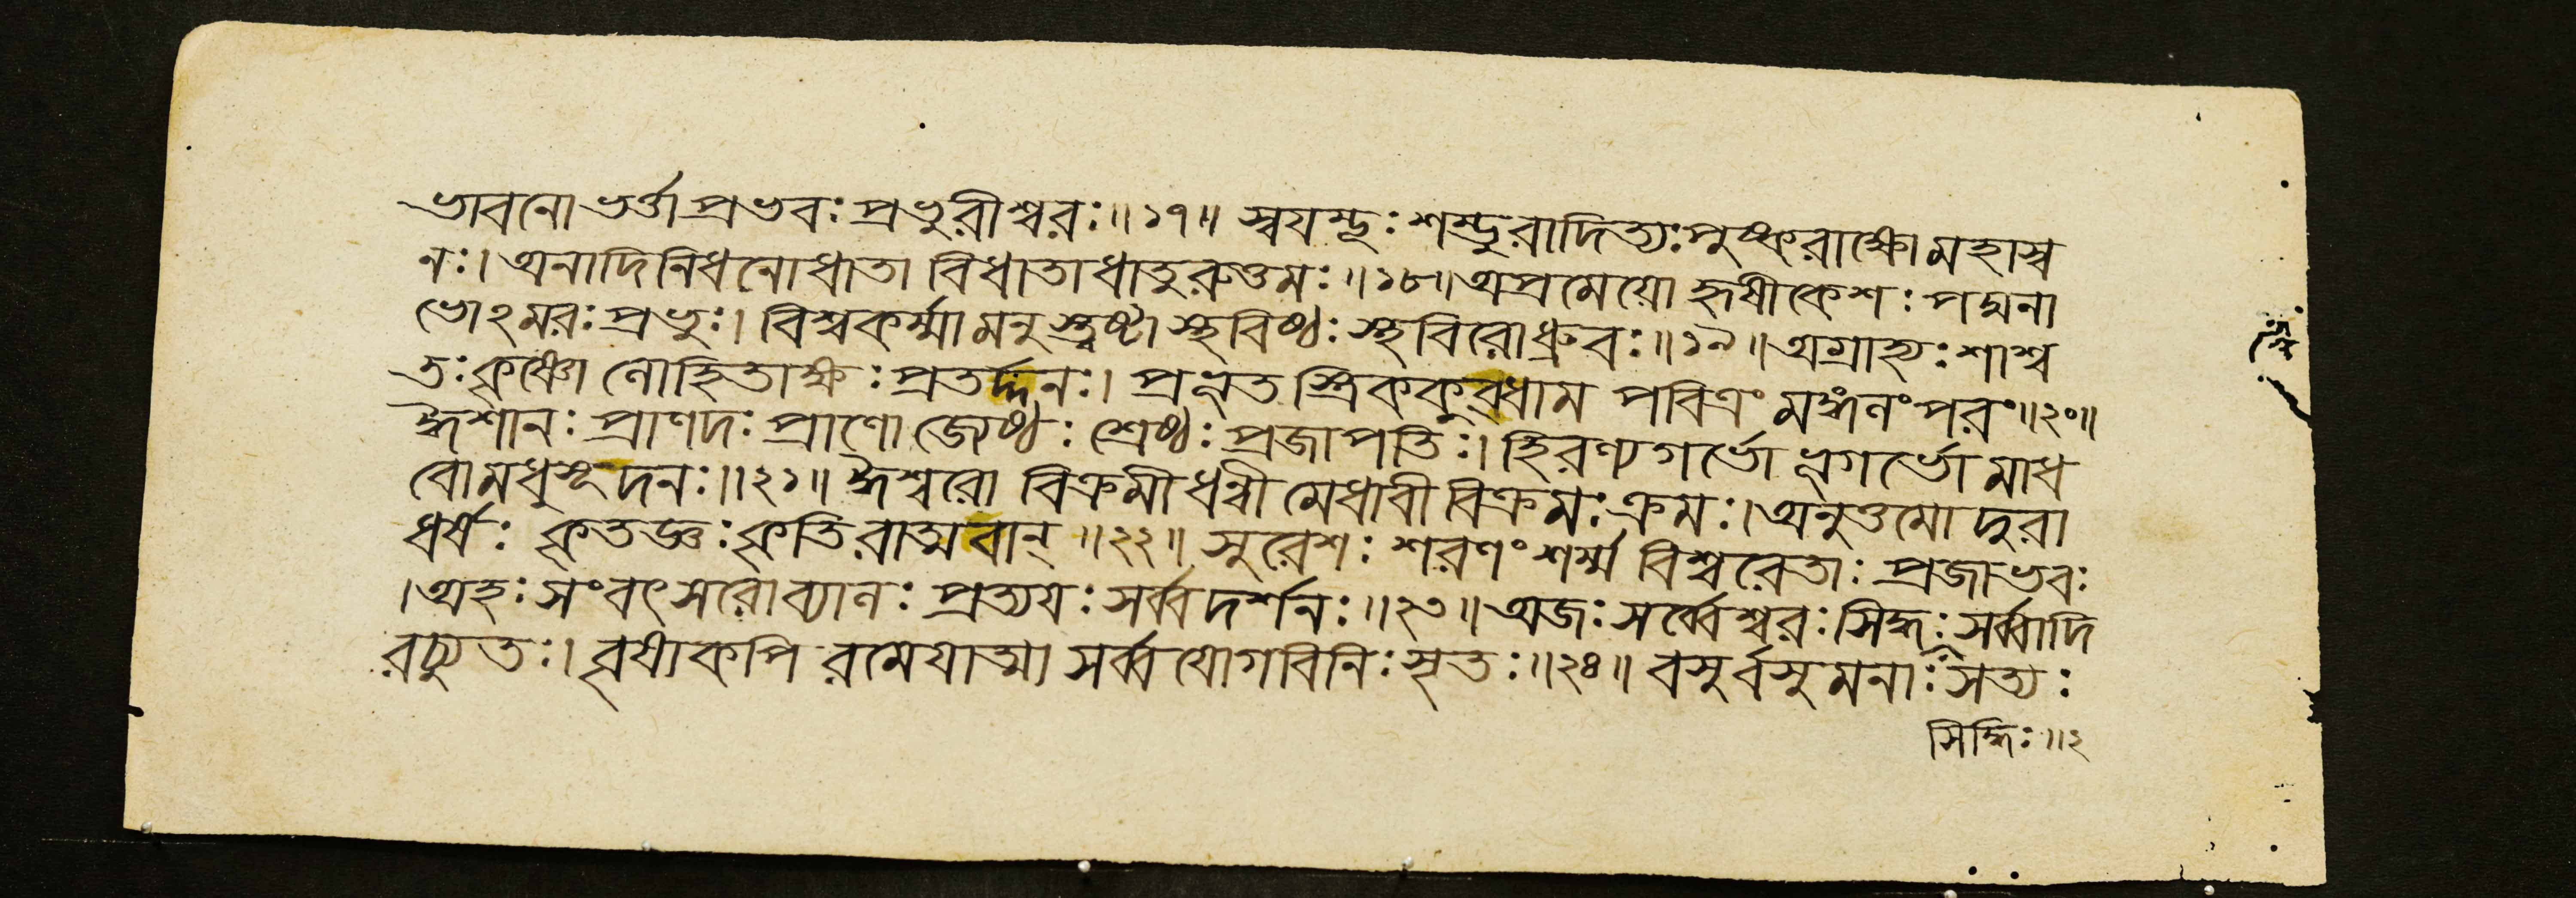 ভাবনো ভর্ত্তা প্রভবঃ প্রভুরীশ্বরঃ॥১৭॥ স্বযম্ভূঃ শম্ভুরাদিত্যঃ পুষ্করাক্ষো মহাস্ব
নঃ। অনাদিনিধনো ধাতা বিধাতা ধাতুরুত্তমঃ॥১৮॥ অপ্রমেয়ো হৃষীকেশঃ পদ্মনা
ভোঽমরঃ প্রভুঃ। বিশ্বকর্ম্মা মনুস্ত্বষ্টা স্থবিষ্ঠঃ স্থবিরো ধ্রুবঃ॥১৯॥ অগ্রাহ্যঃ শাশ্ব
তঃ কৃষ্ণো লোহিতাক্ষঃ প্রতর্দ্দনঃ। প্রভূত স্ত্রিককুব্ধাম পবিত্রং মঙ্গলং পরং॥২০॥
ঈশানঃ প্রাণদঃ প্রাণো জ্যেষ্ঠঃ শ্রেষ্ঠঃ প্রজাপতিঃ। হিরণ্যগর্ভো ভূগর্ভো মাধ
বো মধুসূদনঃ॥২১॥ ঈশ্বরো বিক্রমী ধন্বী মেধাবী বিক্রমঃ ক্রমঃ। অনুত্তমো দুরা
ধর্ষঃ কৃতজ্ঞঃ কৃতিরাত্মবান্॥২২॥ সুরেশঃ শরণং শর্ম্ম বিশ্বরেতাঃ প্রজাভবঃ
। অহঃ সংবৎসরো ব্যালঃ প্রত্যযঃ সর্ব্বদর্শনঃ॥২৩॥ অজঃ সর্ব্বেশ্বরঃ সিদ্ধঃ সর্ব্বাদি
রচ্যুতঃ। বৃষাকপি রমেযাত্মা সর্ব্বযোগবিনিঃসৃতঃ॥২৪॥ বসুর্বসুমনাঃ সত্যঃ
সিদ্ধিঃ॥২